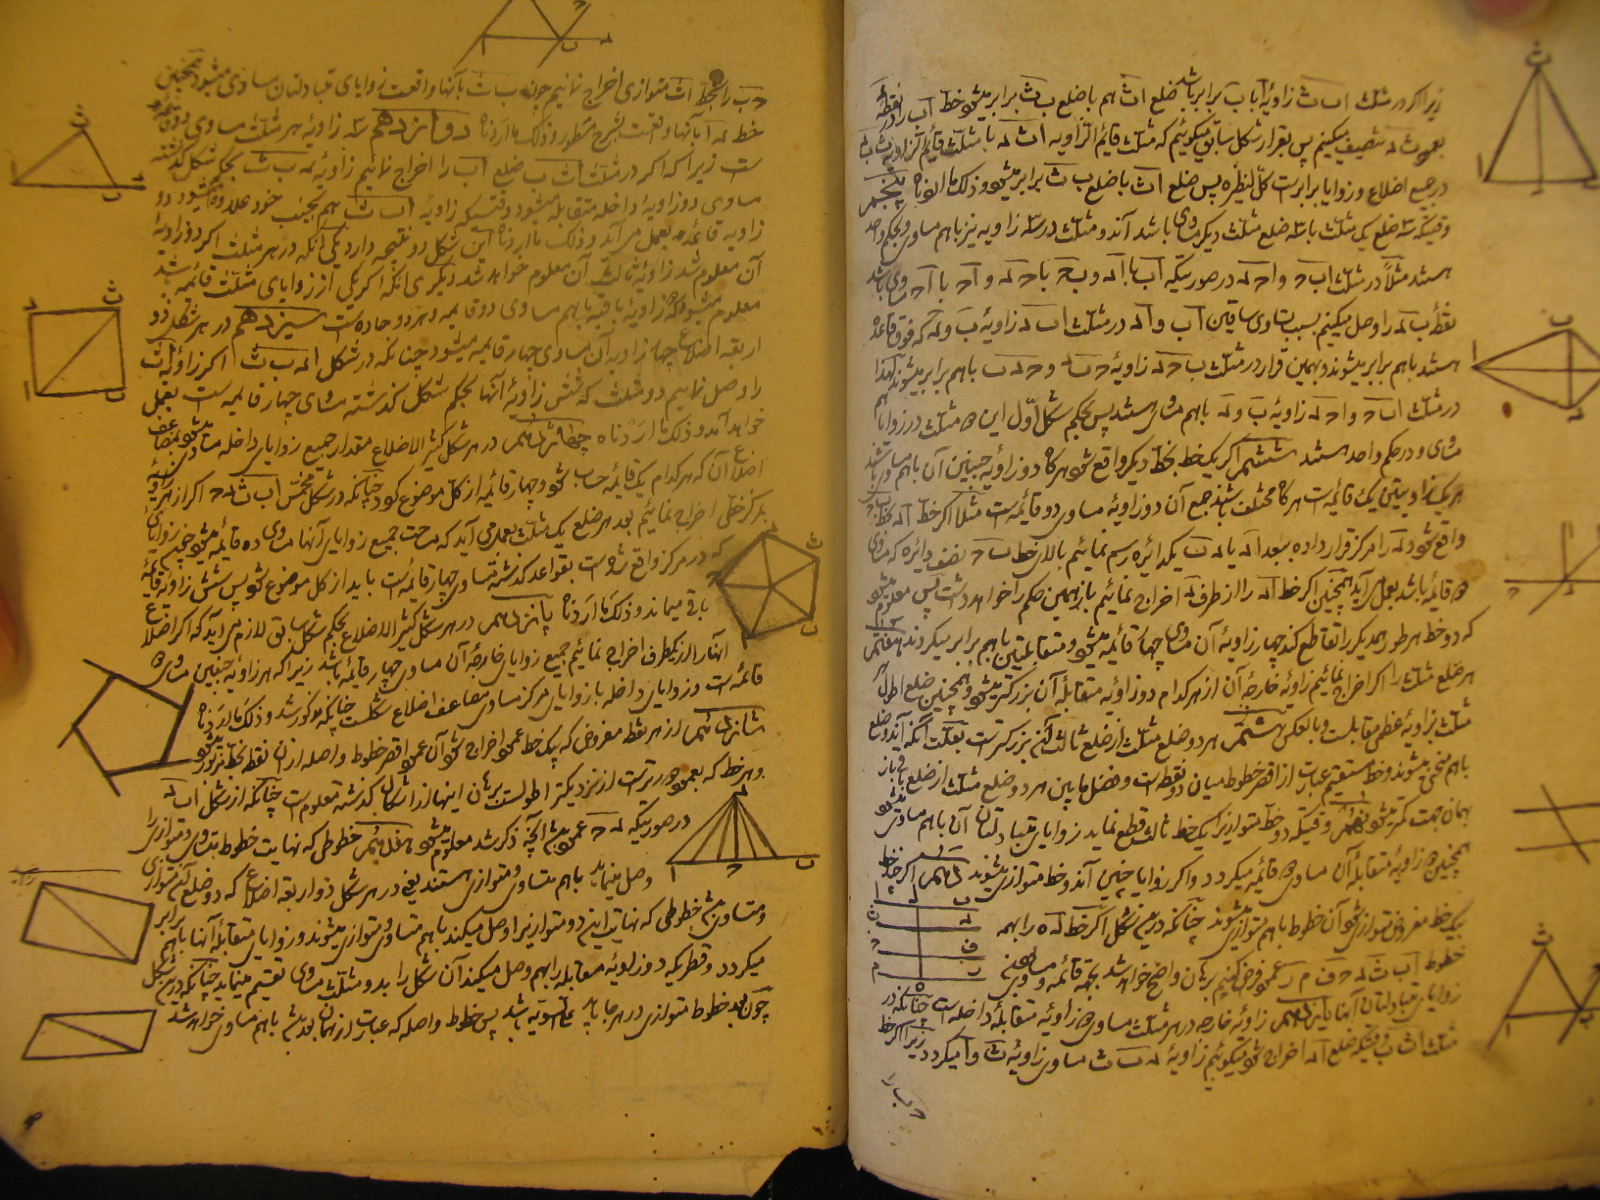 زیرا اگر در مثلث اب ث زاویهٔ ا با ب برابر باشد ضلع اث هم با ضلع ب ث برابر میشود خط اب را در نقطهٔ
بعمود ث د تنصیف میکنیم پس بقرار شکل سابق میگوئیم که مثلث قائم الزاویه اث د با مثلث قائم الزاویه ث ب د
در جمیع اضلاع و زوایا برابرست کل لنظیره پس ضلع اث با ضلع ب ث برابر میشود و ذلک ما اردناه پنجم
وقتیکه سه ضلع یک مثلث با سه ضلع مثلث دیگر مساوی باشد آن دو مثلث در سه زاویه نیز باهم مساوی و بحکم واحد
هستند مثلاً در مثلث اب ح و اح د در صورتیکه اب با اد و ب ح با ح د و اح با اح مساوی باشد
نقطهٔ ب د را وصل میکنیم بسبب تساوی ساقین اب و اد در مثلث اب د زاویهٔ ب و د که فوق قاعدهٔ
هستند باهم برابر میشوند و بهمین قرار در مثلث ب ح د زاویهٔ ح ب د و ح د ب باهم برابر میشوند لهذا
در مثلث اب ح و اح د زاویهٔ ب و د باهم مساوی هستند پس بحکم شکل اول این دو مثلث در زوایا هم
مساوی و در حکم واحد هستند ششم اگر یک خط بخط دیگر واقع شود هرگاه دو زاویهٔ جنبین آن باهم مساوی باشد
هر یک زاویتین یک قائمه است هرگاه مختلف باشد جمع آن دو زاویه مساوی دو قائمه است مثلاً اگر خط اد بخط ب ح
واقع شود د را مرکز قرار داده ببعد اد یا د ب یک دائره رسم نمائیم بالای خط ب ح نصف دائره که مساوی
دو قائمه باشد بعمل آید همچنین اگر خط اد را از طرف د اخراج نمائیم باز همین حکم را خواهد داشت پس معلوم میشود
که دو خط هر طور همدیگر را تقاطع کند چهار زاویهٔ آن مساوی چهار قائمه میشود و متقابلتین باهم برابر میگردند هفتم
هر ضلع مثلث را اگر اخراج نمائیم زاویهٔ خارجهٔ آن از هر کدام دو زاویهٔ متقابلهٔ آن بزرگتر میشود و همچنین ضلع اطول
مثلث بزاویهٔ عظمی مقابلست و بالعکس هشتم هر دو ضلع مثلث از ضلع ثالث آن بزرگترست بعلت آنکه آن دو ضلع
باهم منحنی میشوند و خط مستقیم عبارت از اقصر خطوط میان دو نقطه است و فضل مابین هر دو ضلع مثلث از ضلع باقی باز
بهمان جهت کمتر میشود نهم وقتیکه دو خط متوازی را یک خط ثالث قطع نماید زوایای متبادلتان آن باهم مساوی میشود
همچنین دو زاویهٔ متقابلهٔ آن مساوی دو قائمه میگردد و اگر زوایا چنین آید دو خط متوازی میشوند دهم اگر چند خط
بیک خط مفروض متوازی شود آن خطوط باهم متوازی میشوند چنانکه درین شکل اگر خط د ه را بهمه
خطوط اب ث د ح ف م ر عمود فرض کنیم برهان واضح خواهد شد بجهة قائمه و مساوی بودن
زوایای متبادلتان آنها یازدهم زاویهٔ خارجه در هر مثلث مساوی دو زاویهٔ متقابلهٔ داخله است چنانکه در
مثلث اث ب وقتیکه ضلع اد اخراج شود میگوئیم زاویهٔ د ب ث مساوی زاویهٔ ث و ا میگردد زیرا اگر خط
ح ب را
ح ب را بخط اث متوازی اخراج نمائیم چون ب ث بآنها واقعست زوایای متبادلتان مساوی میشود همچنین
خط د ا بآنها واقعست بشرح مسطور و ذلک ما اردناه دوازدهم سه زاویهٔ هر مثلث مساوی دو قائمه
ست زیرا که اگر در مثلث اث ب ضلع اب را اخراج نمائیم زاویهٔ د ب ث بحکم شکل گذشته
مساوی دو زاویهٔ داخله متقابله میشود وقتیکه زاویهٔ اب ث هم بجنب خود علاوه میشود دو
زاویه قائمه بعمل می‌آید و ذلک ما اردناه این شکل دو نتیجه دارد یکی آنکه در هر مثلث اگر دو زاویهٔ
آن معلوم شد زاویهٔ ثالث آن معلوم خواهد شد دیگری آنکه اگر یکی از زوایای مثلث قائمه باشد
معلوم میشود که دو زاویهٔ باقیه باهم مساوی دو قایمه و هر دو حاده است سیزدهم در هر شکل ذو
اربعه اضلاع چهار زاویه آن مساوی چهار قایمه میشود چنانکه در شکل اد ب ث اگر زاویهٔ ا ث
را وصل نمائیم دو مثلث که شش زاویهٔ آنها بحکم شکل گذشته مساوی چهار قایمه ست بعمل
خواهد آمد و ذلک ما اردناه چهاردهم در هر شکل کثیر الاضلاع مقدار جمیع زوایای داخله مساوی میشود بمضاعف
اضلاع آن که هر کدام یک قائمه حساب شود و چهار قائمه از کل موضوع گردد چنانکه در شکل مخمس اب ث د ح اگر از هر زاویه
بمرکز خطی اخراج نمائیم بعد هر ضلع یک مثلث بعمل می آید که مساحت جمیع زوایای آنها مساوی ده قائمه میشود چون زوایای
که در مرکز واقع شده است بقواعد گذشته مساوی چهار قائمه است باید از کل موضوع شود پس شش زاویه قائمه
باقی میماند و ذلک ما اردناه پانزدهم در هر شکل کثیر الاضلاع بحکم شکل سابق لازم می آید که اگر اضلاع
آنها را از یکطرف اخراج نمائیم جمیع زوایای خارجهٔ آن مساوی چهار قائمه باشد زیرا که هر زاویهٔ جنبین مساوی دو
قائمه است و زوایای داخله با زوایای مرکز مساوی مضاعف اضلاع شکلست چنانکه مذکور شد و ذلک ما اردناه
شانزدهم از هر نقطه مفروض که یک خط عمود اخراج شود آن عمود اقصر خطوط واصله از آن نقطه بخط مزبور میشود
و هر خط که بعمود دورترست از نزدیکتر اطولست برهان اینها از اشکال گذشته معلومست چنانکه از شکل اب د
در صورتیکه د ح عمود باشد آنچه ذکر شد معلوم میشود هفدهم خطوطی که نهایت خطوط متساوی و متوازی را
وصل مینماید باهم متساوی و متوازی هستند یعنی در هر شکل ذو اربعه اضلاع که دو ضلع آن متوازی
و متساوی باشد خطوطی که نهایت این دو متوازی را وصل میکند باهم متساوی و متوازی میشوند و زوایای متقابله آنها باهم برابر
میگردد و قطریکه دو زاویهٔ متقابله را بهم وصل میکند آن شکل را بدو مثلث مساوی تقسیم مینماید چنانکه درین شکل
چون بعد خطوط متوازی در هر جا علی السویه باشد پس خطوط واصله که عبارت از همان بعد باشد باهم مساوی خواهد شد